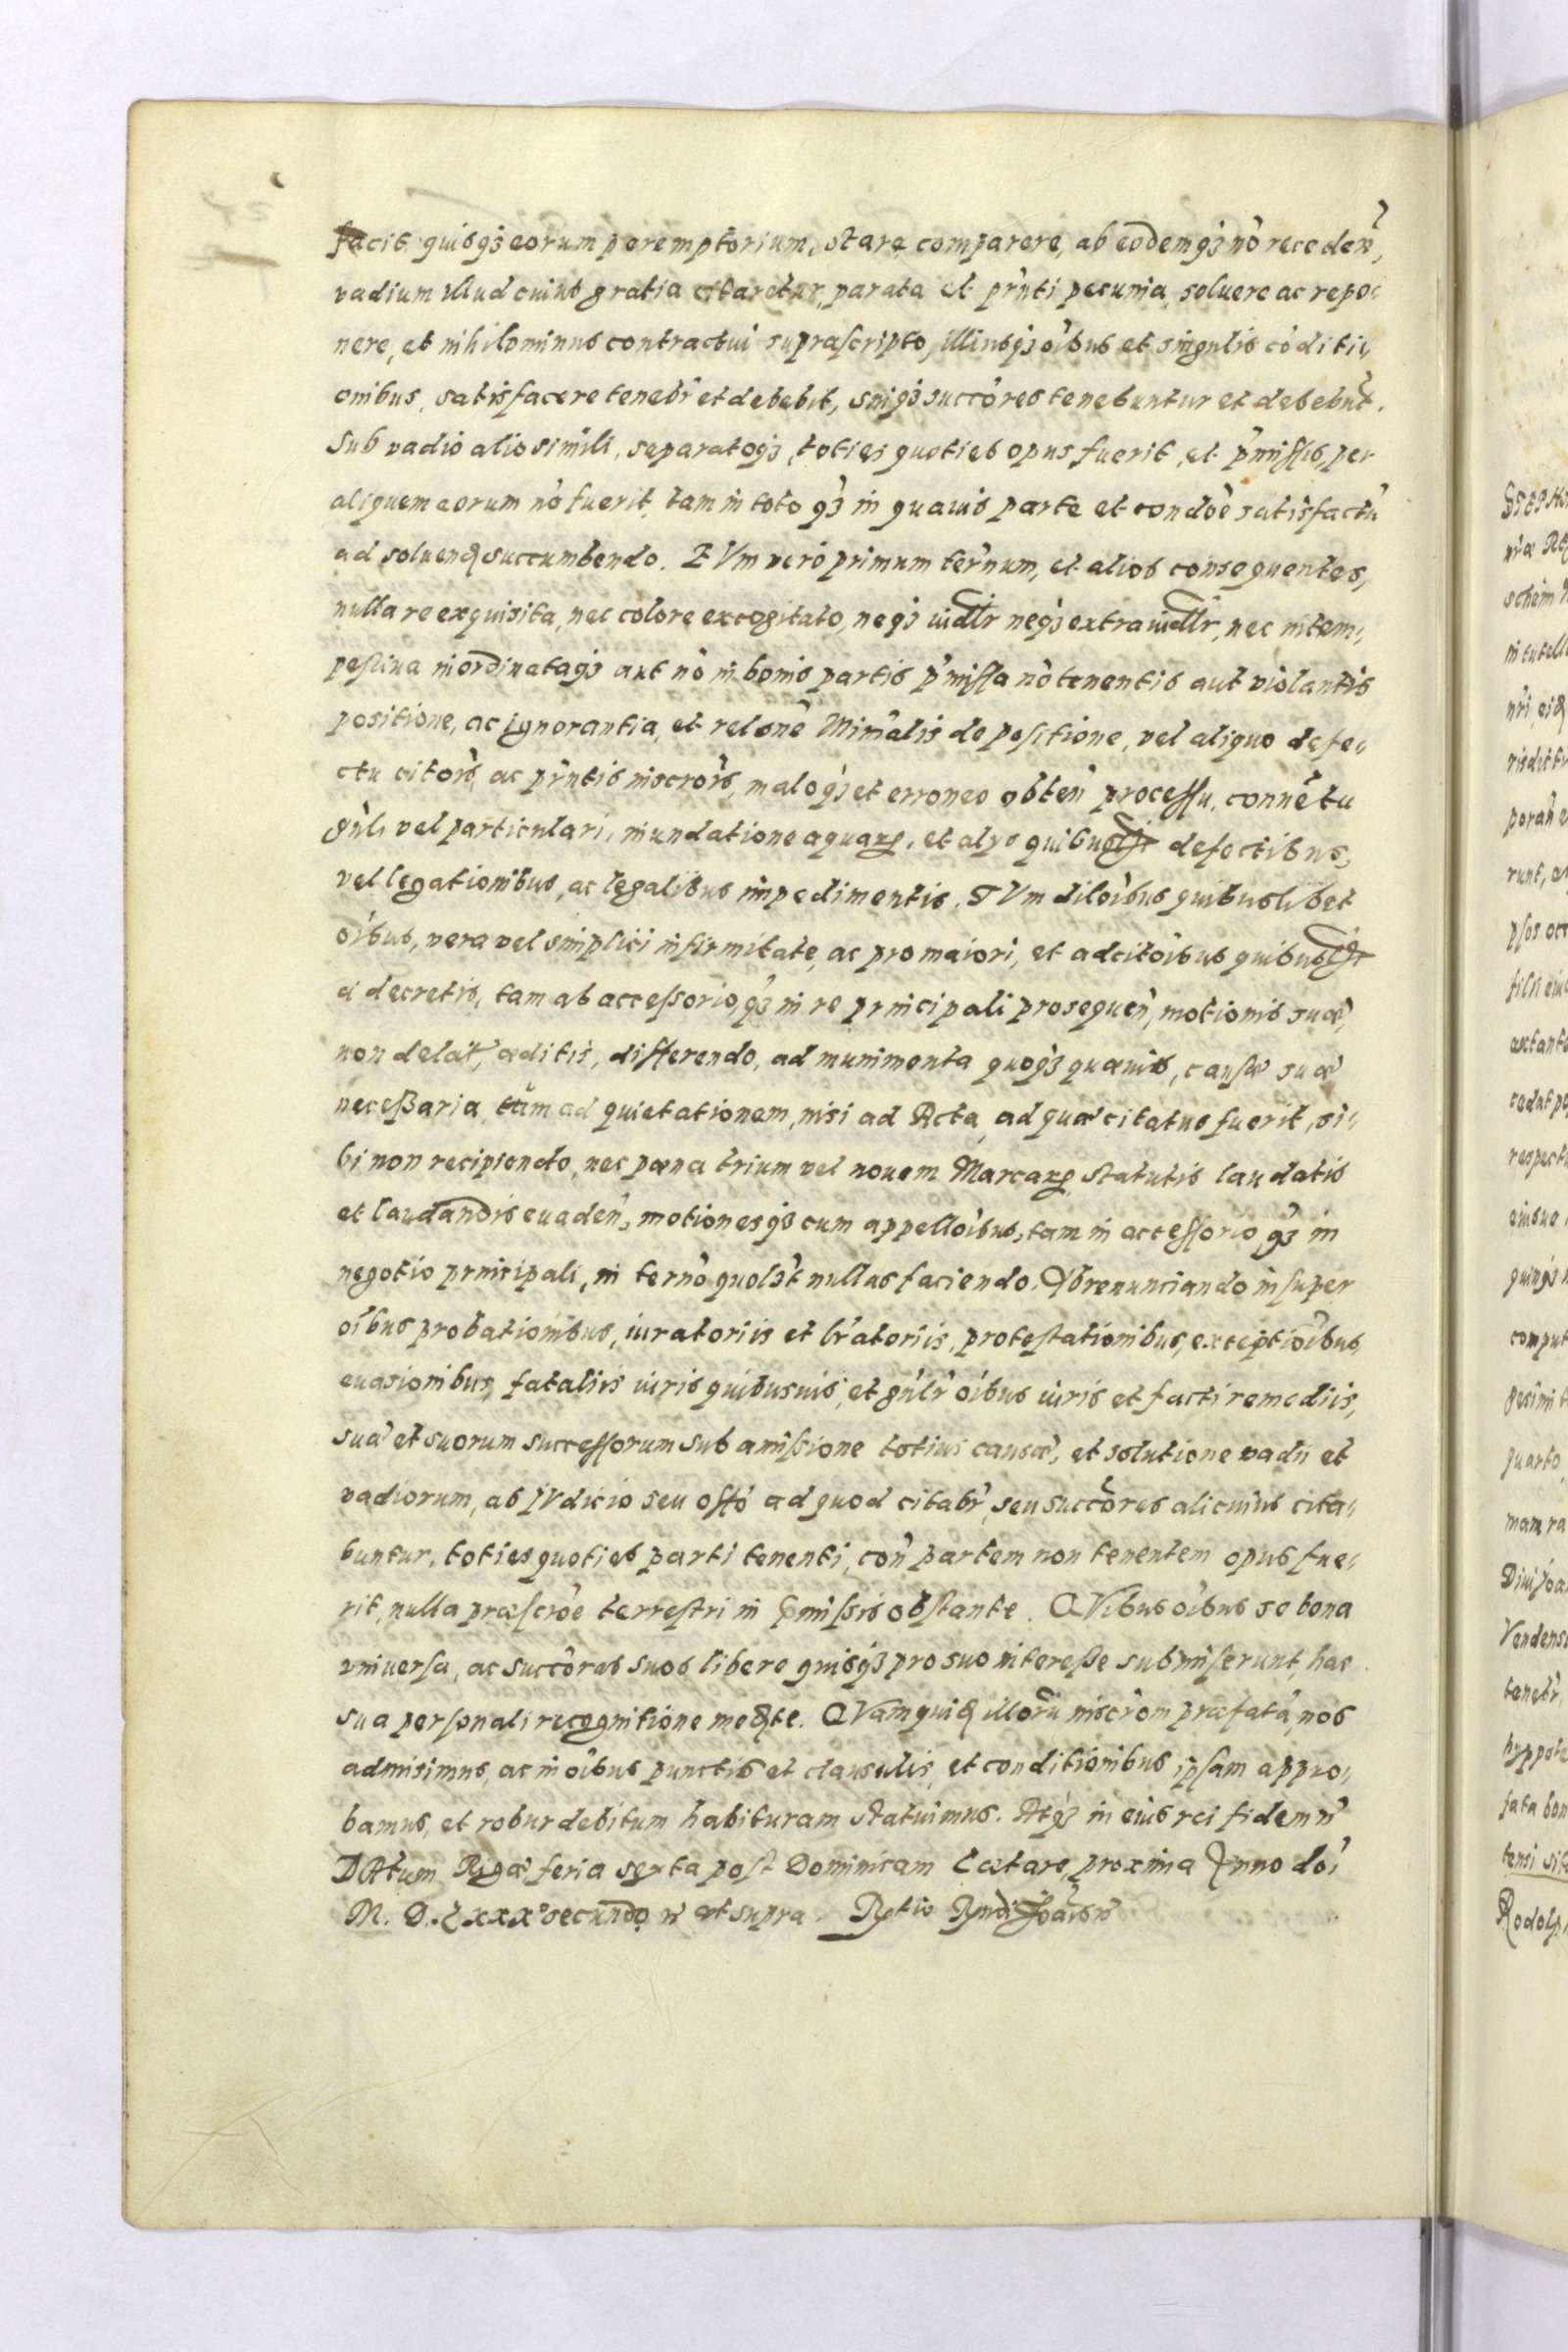 facit quisqʒ eorum peremptorium, stare comparere, ab eodemqʒ nõ receden̄,
vadium illud cuius gratia citaretur, parata et prn̄ti pecunia, soluere ac repo-
nere, et nihilominus contractui supraſcripto, illiusqʒ oĩbus et singulis cõditi-
onibus, satisfacere tenebr̃ et debebit, suiqʒ succõres tenebuntur et debebũt.
Sub vadio alio simili, separatoqʒ, toties quoties opus fuerit, et p̃miſſis, per
aliquem eorum nõ fuerit, tam in toto qʒ in quavis parte et condõe satisfactũ
ad soluend succumbendo. EVm vero primum ter̃num, et alios consequentes,
nulla re exquisita, nec colore excogitato, neqʒ iudlr neqʒ extraiudlr, nec intem-
peſtiva inordinataqʒ aut nõ in bonis partis p̃miſſa nõ tenentis aut violantis
positione, ac ignorantia, et relõne Minr̃alis depoſitione, vel aliquo defe-
ctu citõis, ac prñtis inscrõis, maloqʒ et erroneo obten̄ proceſſu, connẽtu
gñli vel particulari, inundatione aquarꝝ, et alys quibuslibet defectibus,
vel legationibus, ac legalibus impedimentis. TVm dilõibus quibuslibet
oĩbus, vera vel simplici infirmitate, ac pro maiori, et ad citõibus quibuslibet
a decretis, tam ab acceſsorio, qʒ in re principali prosequen̄, motionis suæ,
non delat, æditis, differendo, ad munimenta quoqʒ quævis, cauſæ suæ
neceßaria, tum ad quietationem, nisi ad Acta, ad quæ citatus fuerit, si-
bi non recipiendo, nec pœna trium vel novem Marcarꝝ, statutis laudatis
et laudandis evaden̄, motionesqʒ cum appellõibus, tam in acceſſorio qʒ in
negotio principali, in ter̃no quolʒt nullas faciendo. Abrenunciando inſuper
oĩbus probationibus, iuratoriis et lr̃atoriis, proteſtationibus, exceptiõibus,
euasionibus, fataliis iuris quibusvis, et gñlr̃ oĩbus iuris et facti remediis,
sua et suorum succeſſorum sub amiſsione totius causæ, et solutione vadii et
vadiorum, ab IVdicio seu offõ ad quod citabr̃, seu succõres alicuius cita-
buntur, toties quoties parti tenenti, con̄ partem non tenentem opus fue-
rit, nulla præſcrõe terreſtri in p̃miſsis obſtante. QVibus oĩbus se bona
vniverſa, ac succõres suos libere quisqʒ pro suo intereße submiſerunt, hac
sua perſonali recognitione medte. QVam quid illorũ inscrõm præfatã, nos
admisimus, ac in oĩbus punctis et clausulis, et conditionibus ipſam appro-
bamus, et robur debitum habituram statuimus. Atqʒ in eius rei fidem
DAtum Rigæ feria sexta poſt Dominicam Lætare, proxima Anno doĩ
M. D. Lxxxº secundo ut supra.